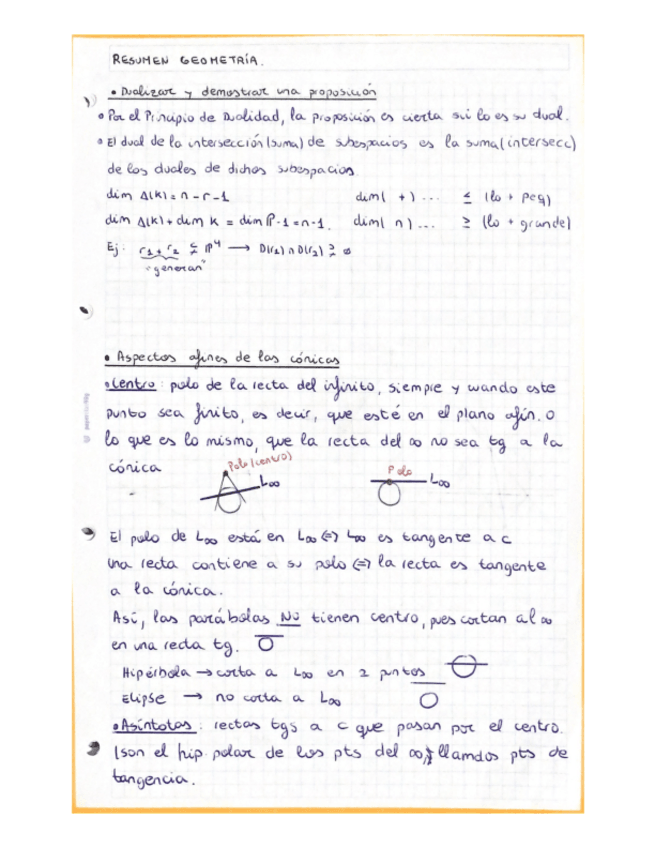 RESUMEN GEOMETRÍA.
• Dualizar y demostrar una proposición
• Por el Principio de Dualidad, la proposición es cierta sii lo es su dual.
• El dual de la intersección (suma) de subespacios es la suma (intersecc)
de los duales de dichos subespacios
dim Δ(K) = n - r - 1 dim( + ) ... ≤ (lo + peq)
dim Δ(K) + dim K = dim P - 1 = n - 1. dim( ∩ ) ... ≥ (lo + grande)
Ej: r1 + r2 ⊊ P⁴ → D(r1) ∩ D(r2) ⊋ ∅
"generan"
• Aspectos afines de las cónicas
• Centro: polo de la recta del infinito, siempre y cuando este
punto sea finito, es decir, que esté en el plano afín. O
lo que es lo mismo, que la recta del ∞ no sea tg a la
cónica
Polo (centro)
L∞
Polo
L∞
El polo de L∞ está en L∞ ⇔ L∞ es tangente a C
Una recta contiene a su polo ⇔ la recta es tangente
a la cónica.
Así, las parábolas NO tienen centro, pues cortan al ∞
en una recta tg.
Hipérbola → corta a L∞ en 2 puntos
Elipse → no corta a L∞
• Asíntotas: rectas tgs a C que pasan por el centro.
(son el hip. polar de los pts del ∞) llamdos pts de
tangencia.